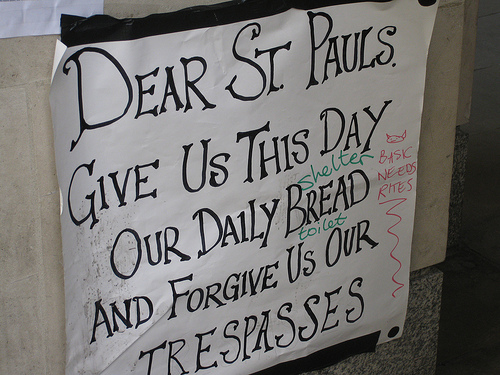 DEAR ST. PAULS.
GIVE US THIS DAY
shelter
OUR DAILY BREAD
toilet
AND FORGIVE US OUR
TRESPASSES
BASIC
NEEDS
RITES